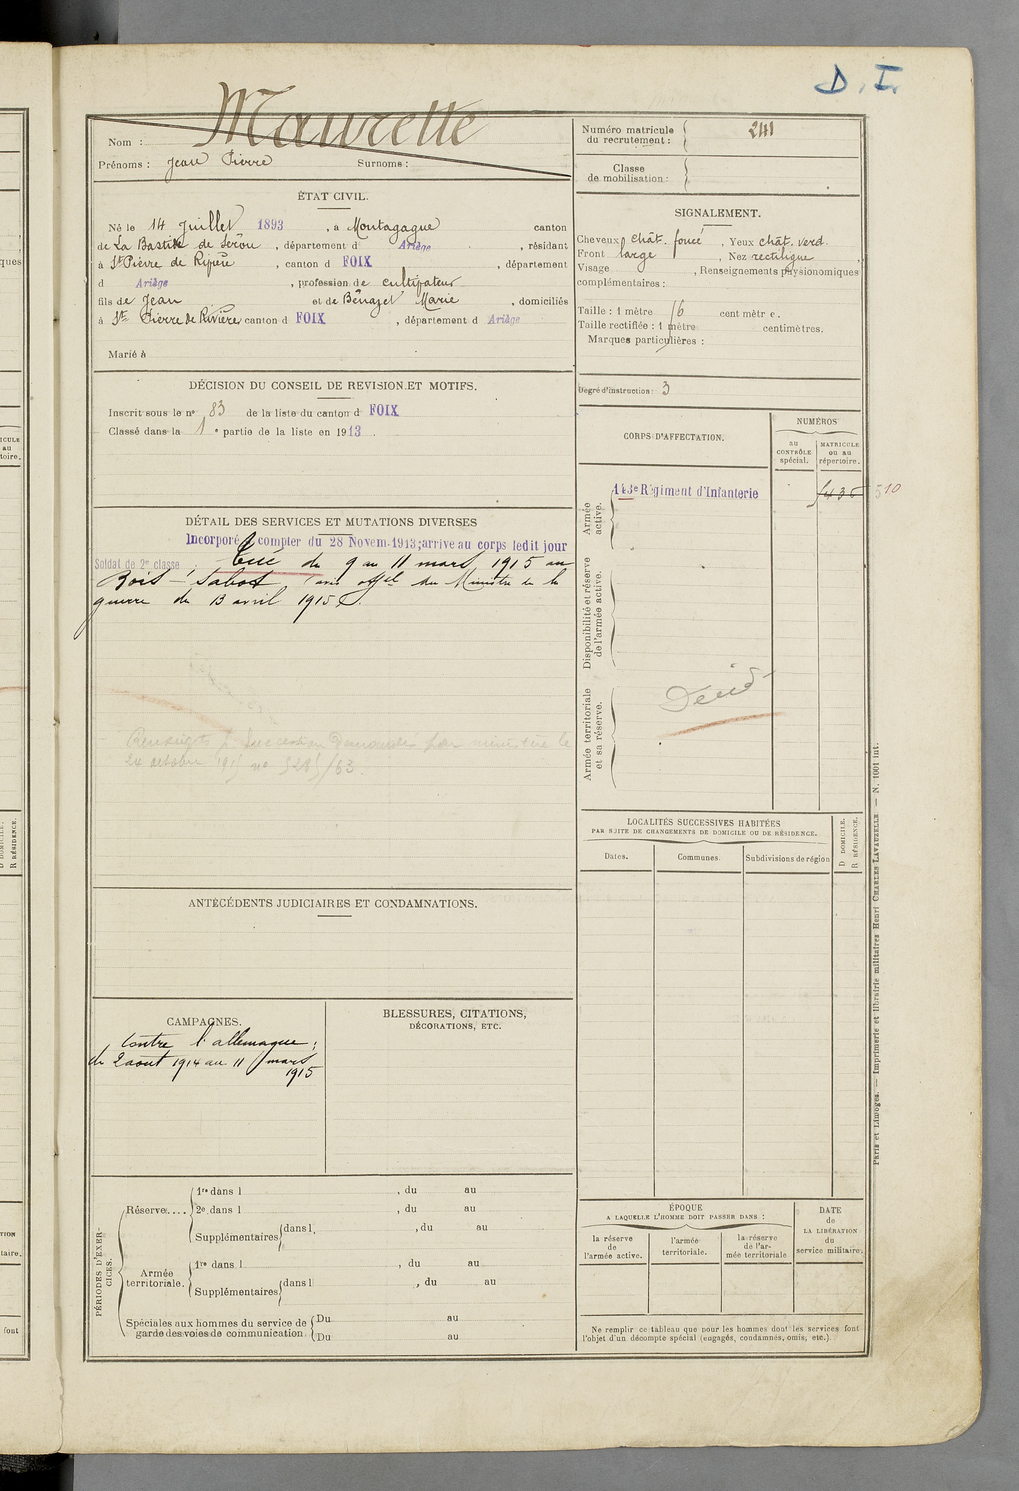 D. I.
Maurette
Nom :
Prénoms : Jean Pierre Surnoms :
Numéro matricule du recrutement : 241
Classe de mobilisation :
ÉTAT CIVIL.
Né le 14 Juillet 1893, à Montagagne canton
de La Bastide de Sérou, département d Ariège, résidant
à St Pierre de Rivière, canton d FOIX, département
d Ariège, profession de cultivateur
fils de Jean et de Bénazet Marie, domiciliés
à St Pierre de Rivière canton d FOIX, département d Ariège
Marié à
SIGNALEMENT.
Cheveux chât. foncé, Yeux chât. verd.
Front large, Nez rectiligne
Visage , Renseignements physionomiques
complémentaires :
Taille : 1 mètre 6 centimètre.
Taille rectifiée : 1 mètre centimètres.
Marques particulières :
Degré d'instruction : 3
DÉCISION DU CONSEIL DE REVISION ET MOTIFS.
Inscrit sous le n° 83 de la liste du canton d FOIX
Classé dans la 1e partie de la liste en 1913.
DÉTAIL DES SERVICES ET MUTATIONS DIVERSES
Incorporé à compter du 28 Novem. 1913; arrive au corps ledit jour
Soldat de 2e classe. Tué du 9 au 11 mars 1915 au
Bois Sabot avis offel du Ministre de la
guerre du 13 avril 1915.
24 octobre
CORPS D'AFFECTATION.
NUMÉROS
au CONTRÔLE spécial.
MATRICULE ou au répertoire.
Armée active.
143e Régiment d'Infanterie
510
Disponibilité et réserve de l'armée active.
Armée territoriale et sa réserve.
LOCALITÉS SUCCESSIVES HABITÉES
PAR SUITE DE CHANGEMENTS DE DOMICILE OU DE RÉSIDENCE.
Dates.
Communes.
Subdivisions de région
D DOMICILE.
R RÉSIDENCE.
ANTÉCÉDENTS JUDICIAIRES ET CONDAMNATIONS.
CAMPAGNES.
Contre l'allemagne;
du 2 août 1914 au 11 mars
1915
BLESSURES, CITATIONS,
DÉCORATIONS, ETC.
PÉRIODES D'EXERCICES.
Réserve....
1re dans l , du au
2e dans l , du au
Supplémentaires dans l , du au
Armée territoriale.
1re dans l , du au
Supplémentaires dans l , du au
Spéciales aux hommes du service de garde des voies de communication.
Du au
Du au
ÉPOQUE
A LAQUELLE L'HOMME DOIT PASSER DANS :
la réserve de l'armée active.
l'armée territoriale.
la réserve de l'armée territoriale
DATE de LA LIBÉRATION du service militaire.
Ne remplir ce tableau que pour les hommes dont les services font
l'objet d'un décompte spécial (engagés, condamnés, omis, etc.).
Paris et Limoges. — Imprimerie et librairie militaires Henri CHARLES-LAVAUZELLE — N. 1001 int.